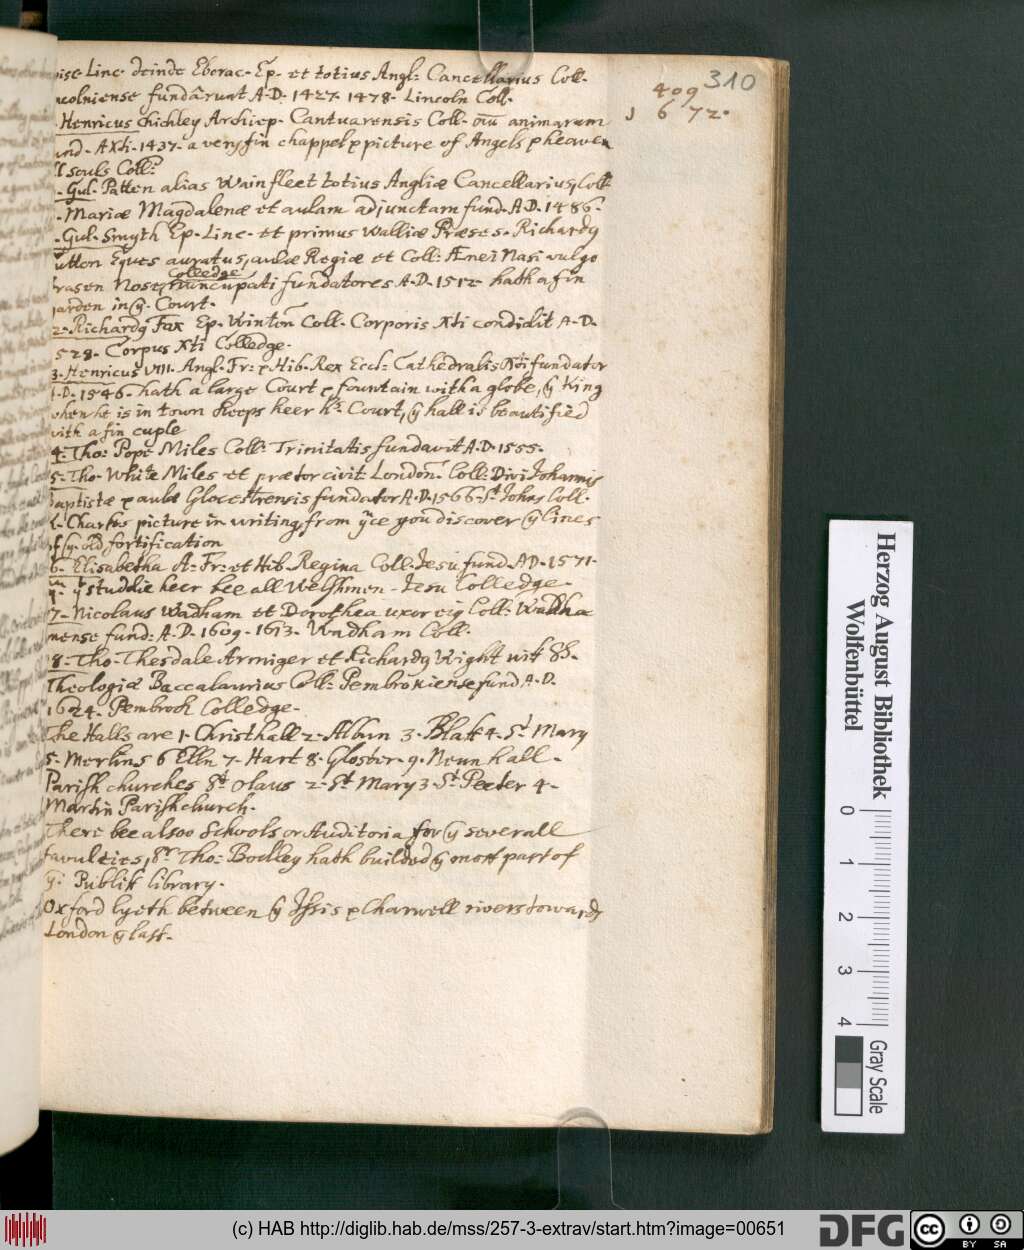 310
409
1672.
Linc. deinde Eborac. Ep. et totius Angl: Cancellarius Coll.
colniense fundârunt A.D. 1427. 1478. Lincoln Coll.
Henricus chichley Archiep. Cantuarensis Coll. oiū animarum
A Xti. 1437. a very fin chappel & picture of Angels & heaven
souls Coll:
Gul. Patten alias Wainfleet totius Angliæ Cancellarius, Coll.
Mariæ Magdalenæ et aulam adjunctam fund. A.D. 1486.
Gul. Smyth Ep. Linc. et primus Walliæ Præses. Richardy
utton Eques auratus, aulæ Regiæ et Coll: Ænei Nasi vulgo
rasen Nose Colledge nuncupati fundatores A.D. 1512 hath a fin
arden in ye. Court.
2. Richardy Fax Ep. Winton Coll. Corporis Xti condidit A.D.
528. Corpus Xti Colledge.
3. Henricus VIII. Angl. Fr: & Hib. Rex Eccl: Cathedralis Xti fundator
A.D. 1546. hath a large Court & fountain with a globe, ye King
when he is in town keeps heer his Court, ye hall is beautified
with a fin cuple
4: Tho: Pope Miles Coll: Trinitatis fundavit A.D. 1555.
5. Tho. White Miles et prætor civit: London. Coll: Divi Johannis
Baptistæ & aulæ Glocestrensis fundator A.D. 1566. St Johns Coll.
K. Charles picture in writing, from yce you discover ye lines
of ye old fortification
6. Elisabetha A: Fr: et Hib. Regina Coll. Jesu fund. A.D. 1571.
yt studdie heer bee all Welshmen. Jesu Colledge.
7. Nicolaus Wadham et Dorothea uxor eiq Coll: Wadha
mense fund: A.D. 1609. 1613. Wadham Coll.
8. Tho. Thesdale Armiger et Richardy Wight
Theologiæ Baccalaurius Coll: Pembrokiense fund. A.D.
1624. Pembrock Colledge.
The Halls are 1. Christhall 2. Albun 3. Blak 4. St Mary
5. Merlins 6 Elln 7. Hart 8. Gloster. 9. Neun hall.
Parish churches St Olaus 2. St Mary 3 St Peeter 4.
Martin Parish church.
There bee alsoo Schools or Auditoria for ye severall
faculties, Sr Tho: Bodley hath builded ye most part of
ye: Publik library.
Oxford lyeth between ye Isis & Charwell rivers towards
London ye last.
Herzog August Bibliothek
Wolfenbüttel
0 1 2 3 4
Gray Scale
(c) HAB http://diglib.hab.de/mss/257-3-extrav/start.htm?image=00651
DFG
cc BY SA